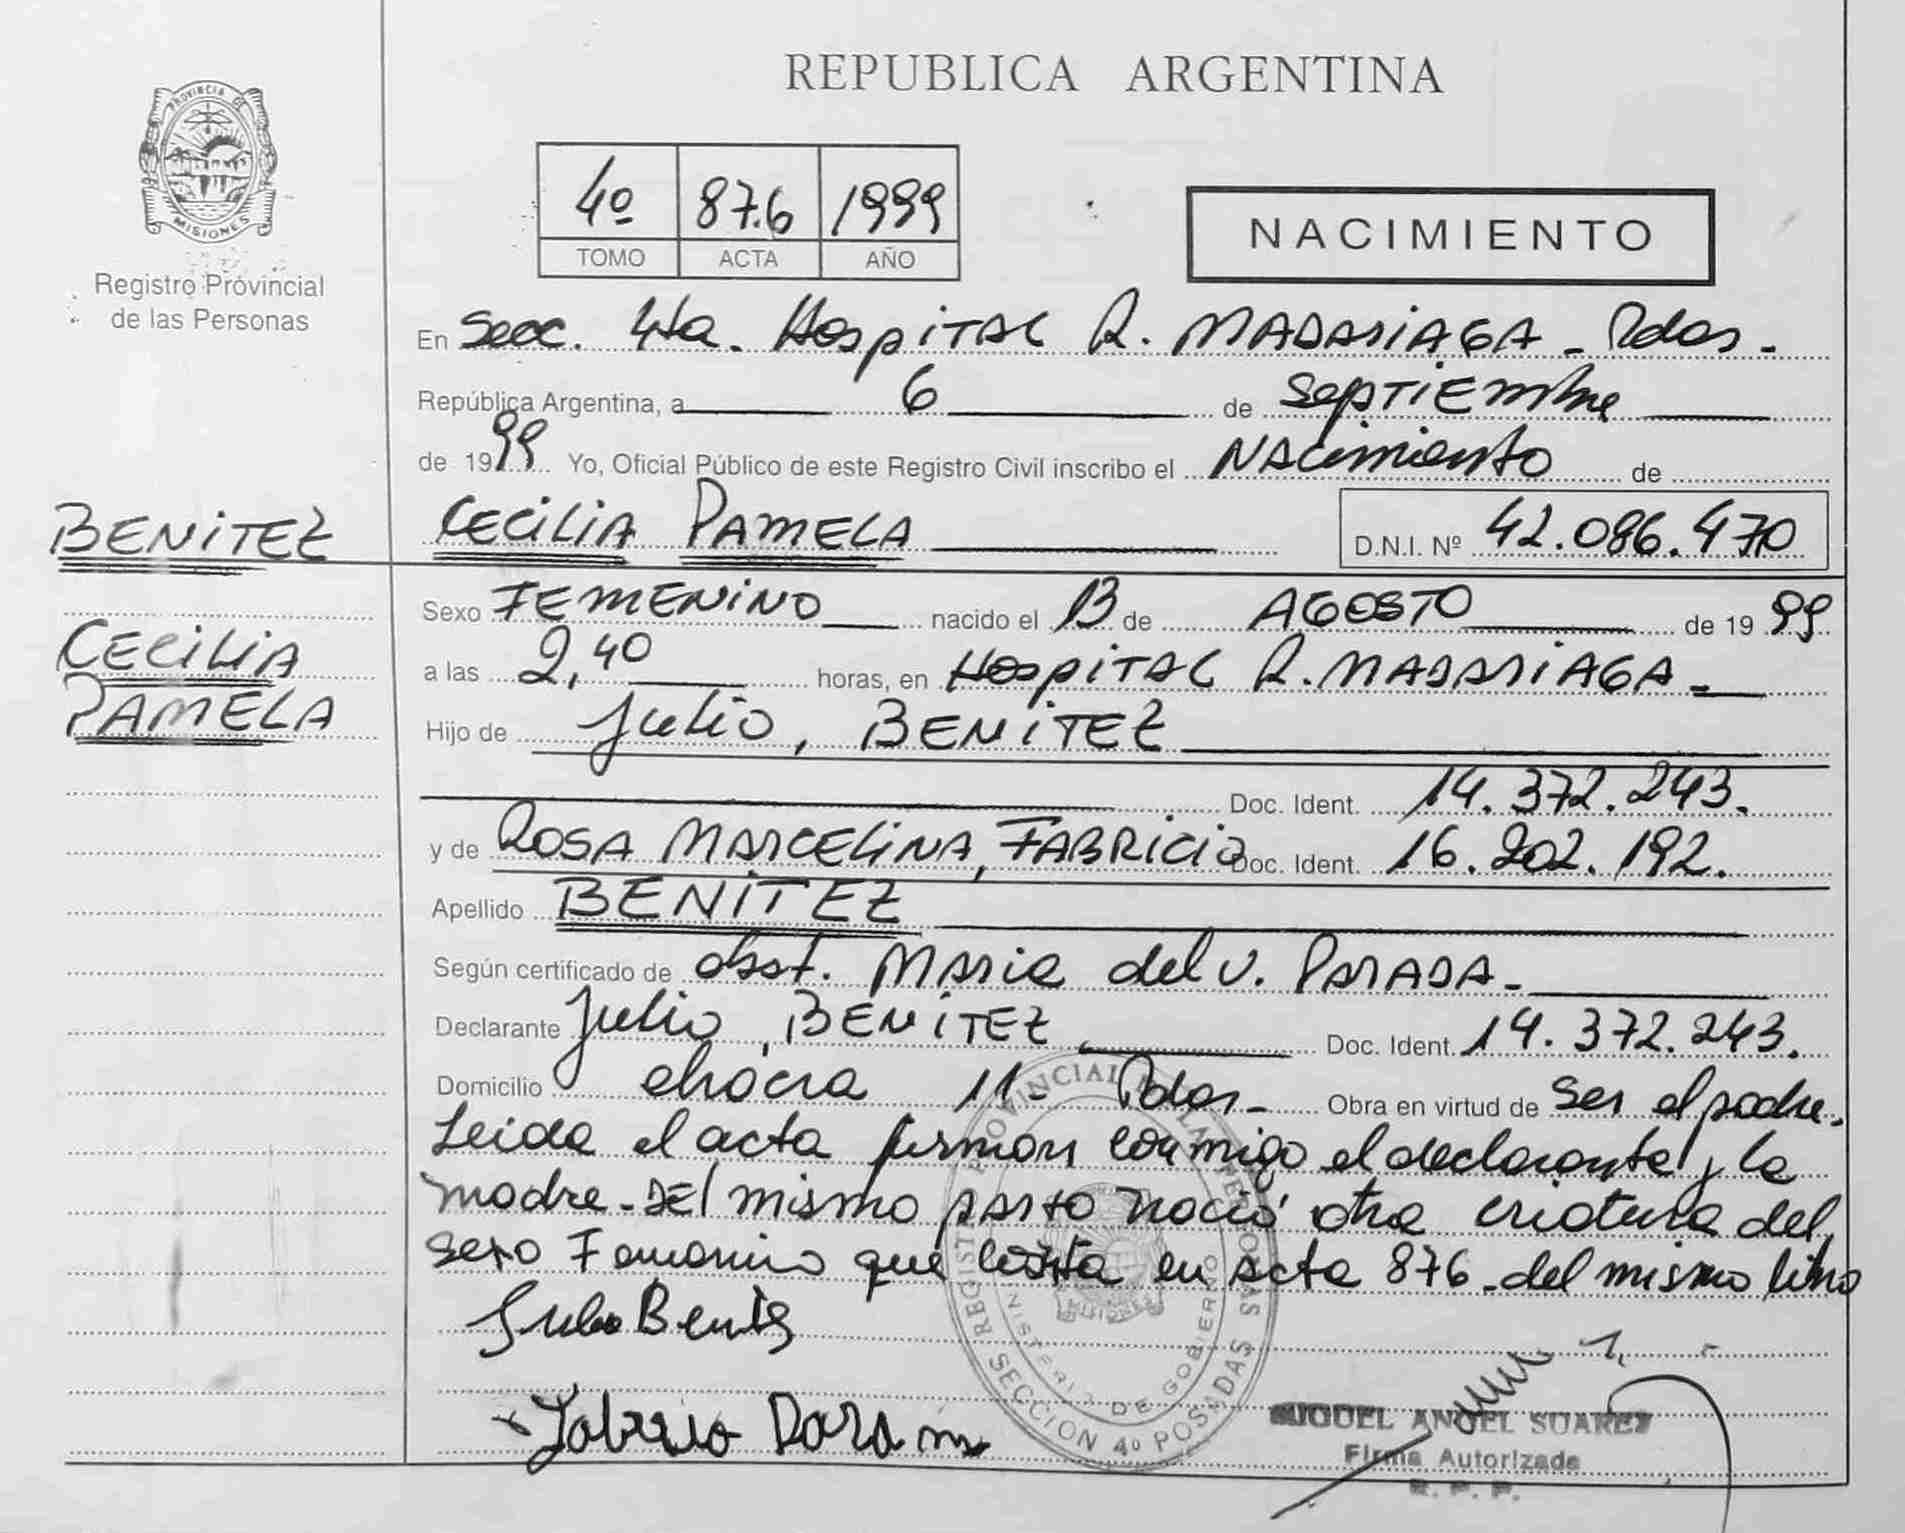 REPUBLICA ARGENTINA
PROVINCIA DE
MISIONES
Registro Provincial
de las Personas
4º 876 1999
TOMO ACTA AÑO
NACIMIENTO
En Secc. 4ta. Hospital R. MADARIAGA - Pdas.-
República Argentina, a 6 de Septiembre
de 1999 Yo, Oficial Público de este Registro Civil inscribo el Nacimiento de
BENITEZ CECILIA PAMELA D.N.I. Nº 42.086.470
Sexo FEMENINO nacido el 13 de AGOSTO de 1999
CECILIA
a las 2,40 horas, en Hospital R. MADARIAGA-
PAMELA
Hijo de Julio, BENITEZ
Doc. Ident. 14.372.243.
y de ROSA MARCELINA, FABRICIO Doc. Ident. 16.202.192.
Apellido BENITEZ
Según certificado de obst. Maria del V. PARADA-
Declarante Julio, BENITEZ Doc. Ident. 14.372.243.
Domicilio chacra 11- Pdas- Obra en virtud de ser el padre.
Leida el acta firman conmigo el declarante y la
madre- DEl mismo parto nació otra criatura del
sexo Femenino que consta en acta 876-del mismo libro
Julio Benites
Fabricio Rosa m
REGISTRO PROVINCIAL DE LAS PERSONAS
MINISTERIO DE GOBIERNO
SECCION 4º POSADAS
MIGUEL ANGEL SUAREZ
Firma Autorizada
R. P. P.